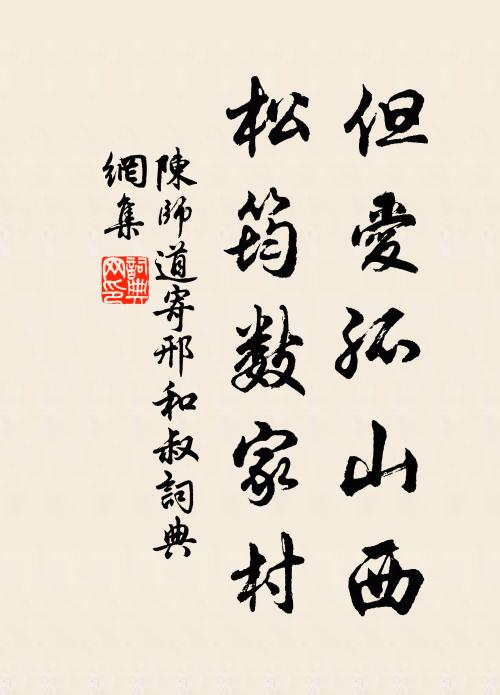 但愛孤山西
松筠數家村
陳師道寄邢和叔詞典
網集
詞典網印